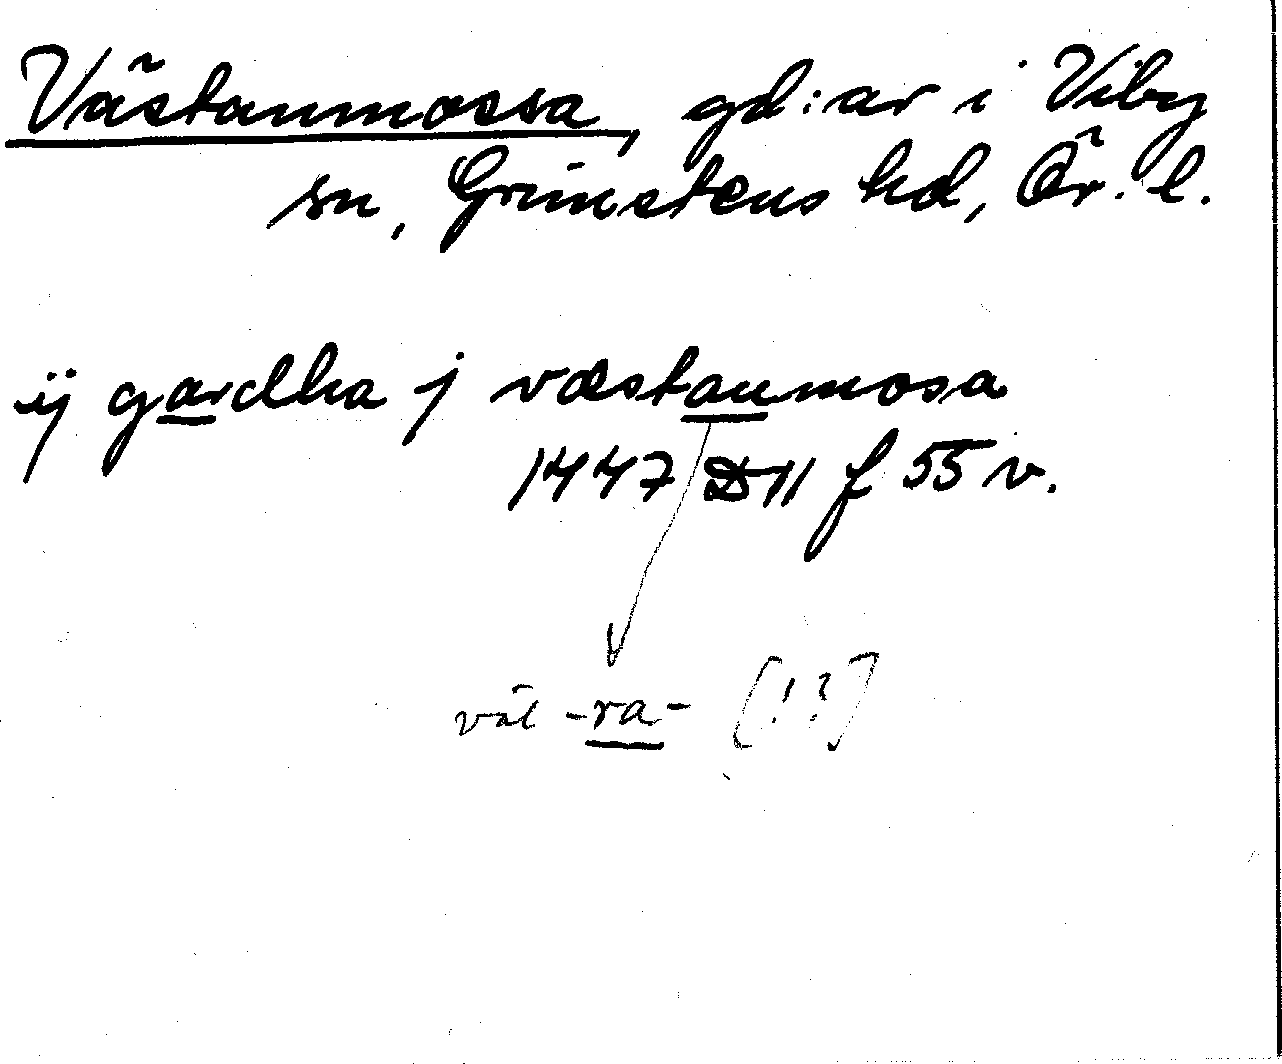 Västanmossa, gd:ar i Viby
sn, Grimstens hd, Ör. l.
ij gardha j væstanmosa
1447 D 11 f 55 v.
väl -ra- [!?]